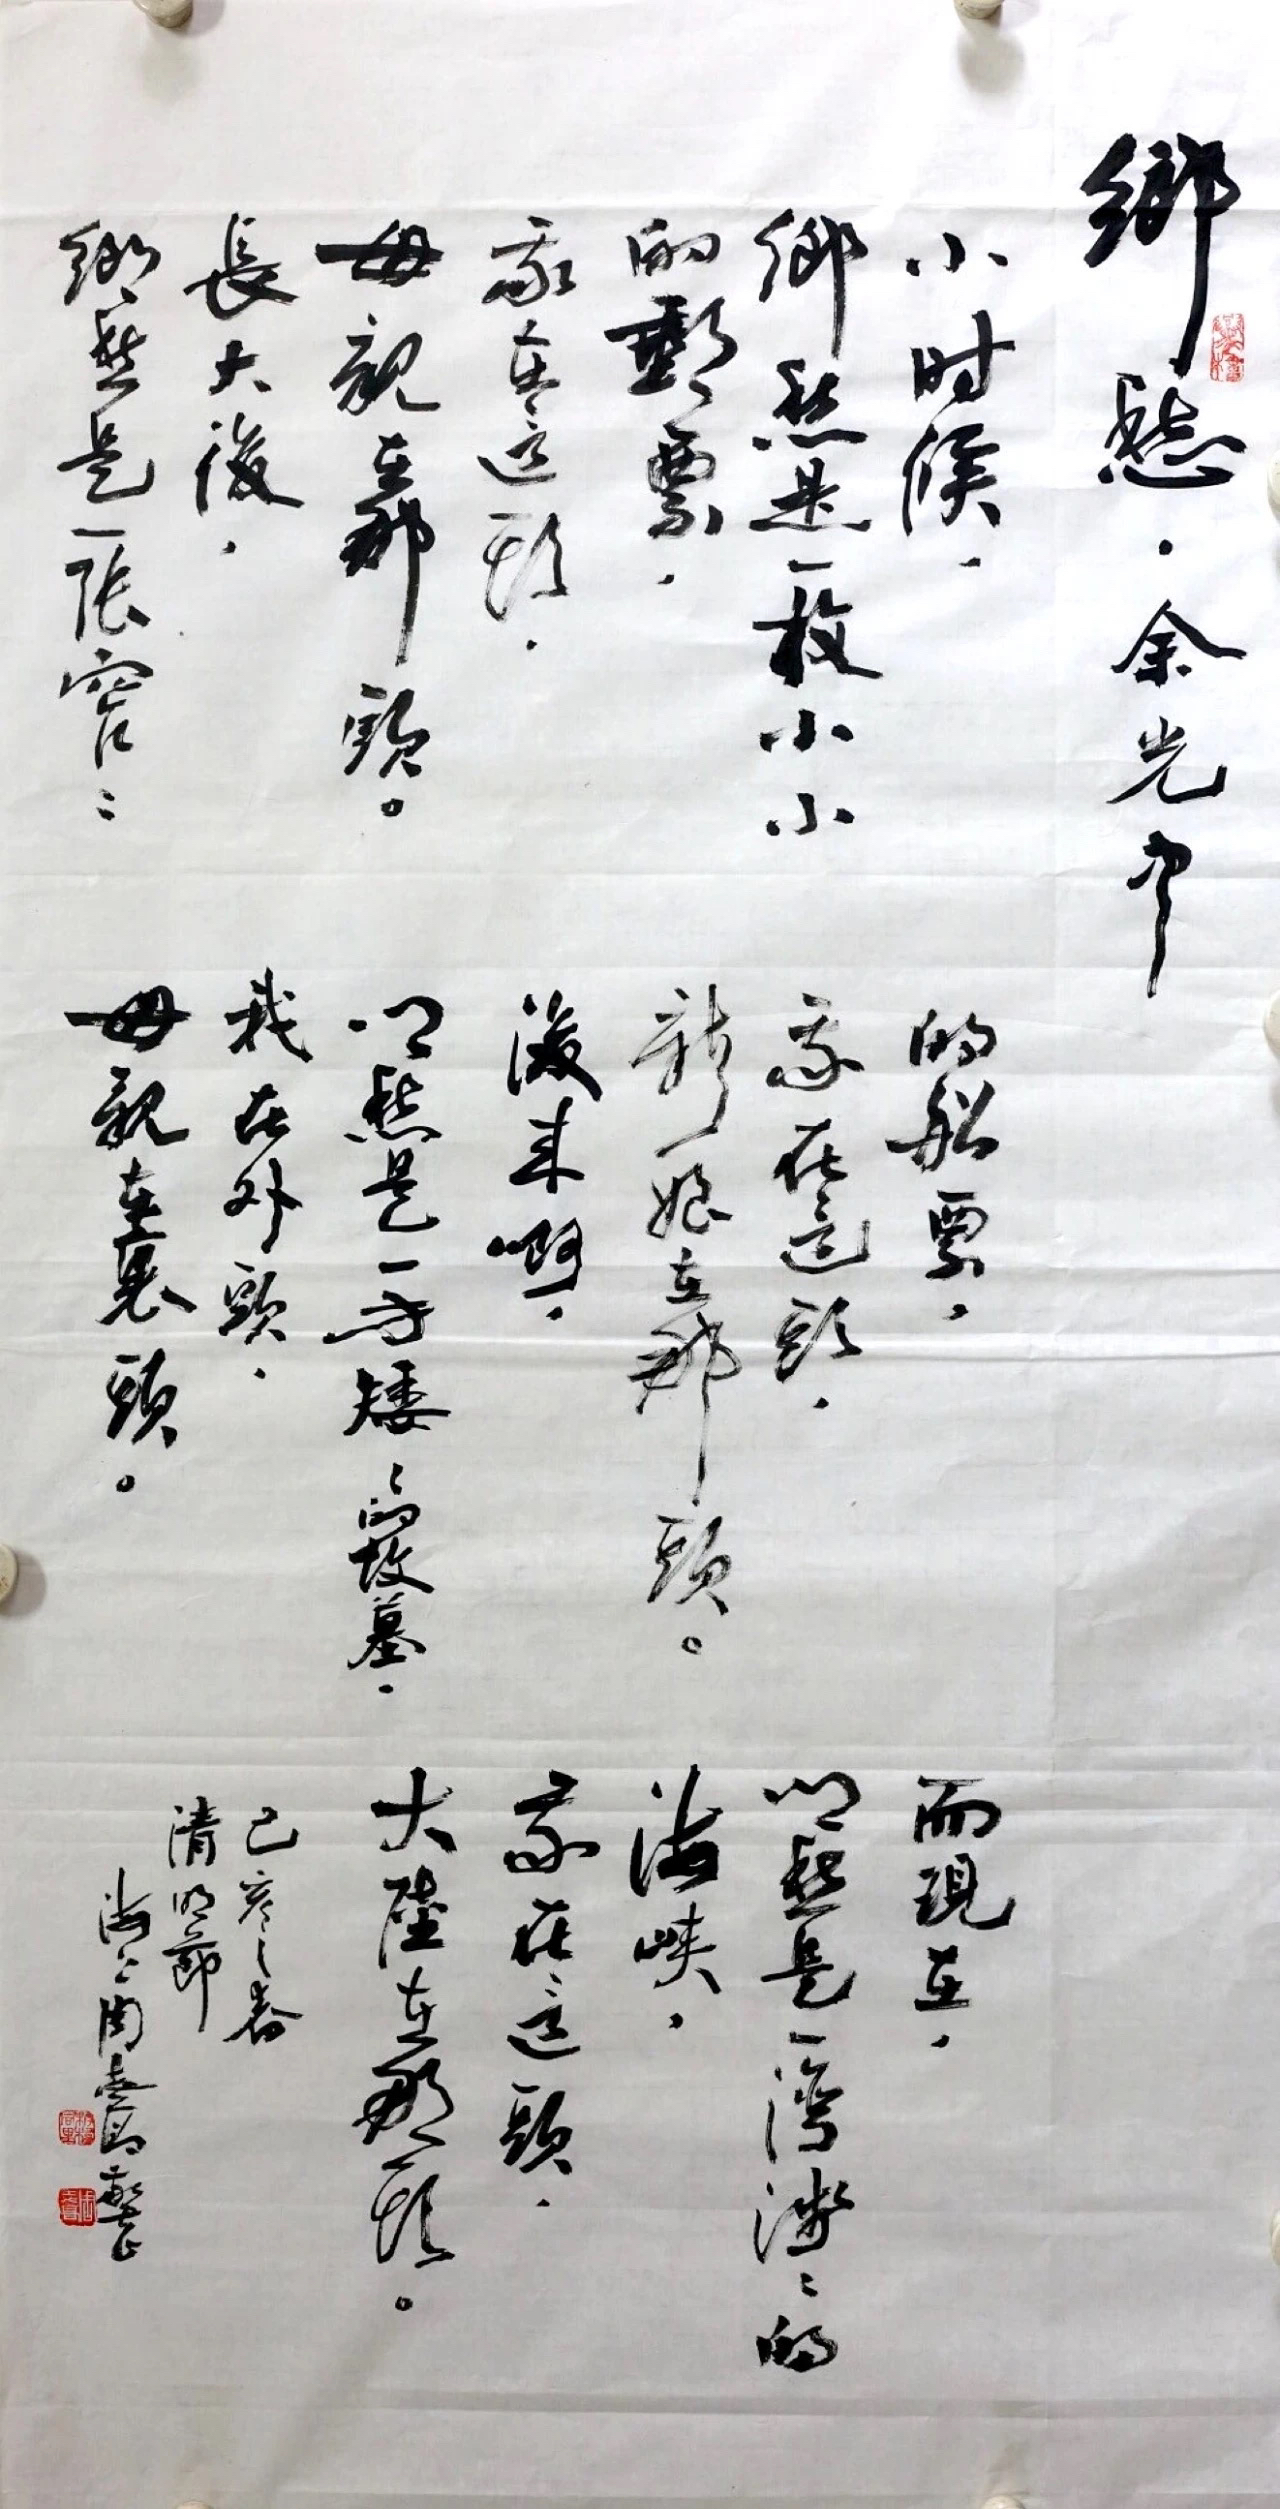 鄉愁·余光中
小时候，
鄉愁是一枚小小
的郵票，
我在這头，
母親在那頭。
長大後，
鄉愁是一張窄〻
的船票，
我在這頭，
新娘在那頭。
後来啊，
鄉愁是一方矮〻的坟墓，
我在外頭，
母親在裏頭。
而現在，
鄉愁是一灣淺〻的
海峽，
我在這頭，
大陸在那头。
己亥之春
清明節